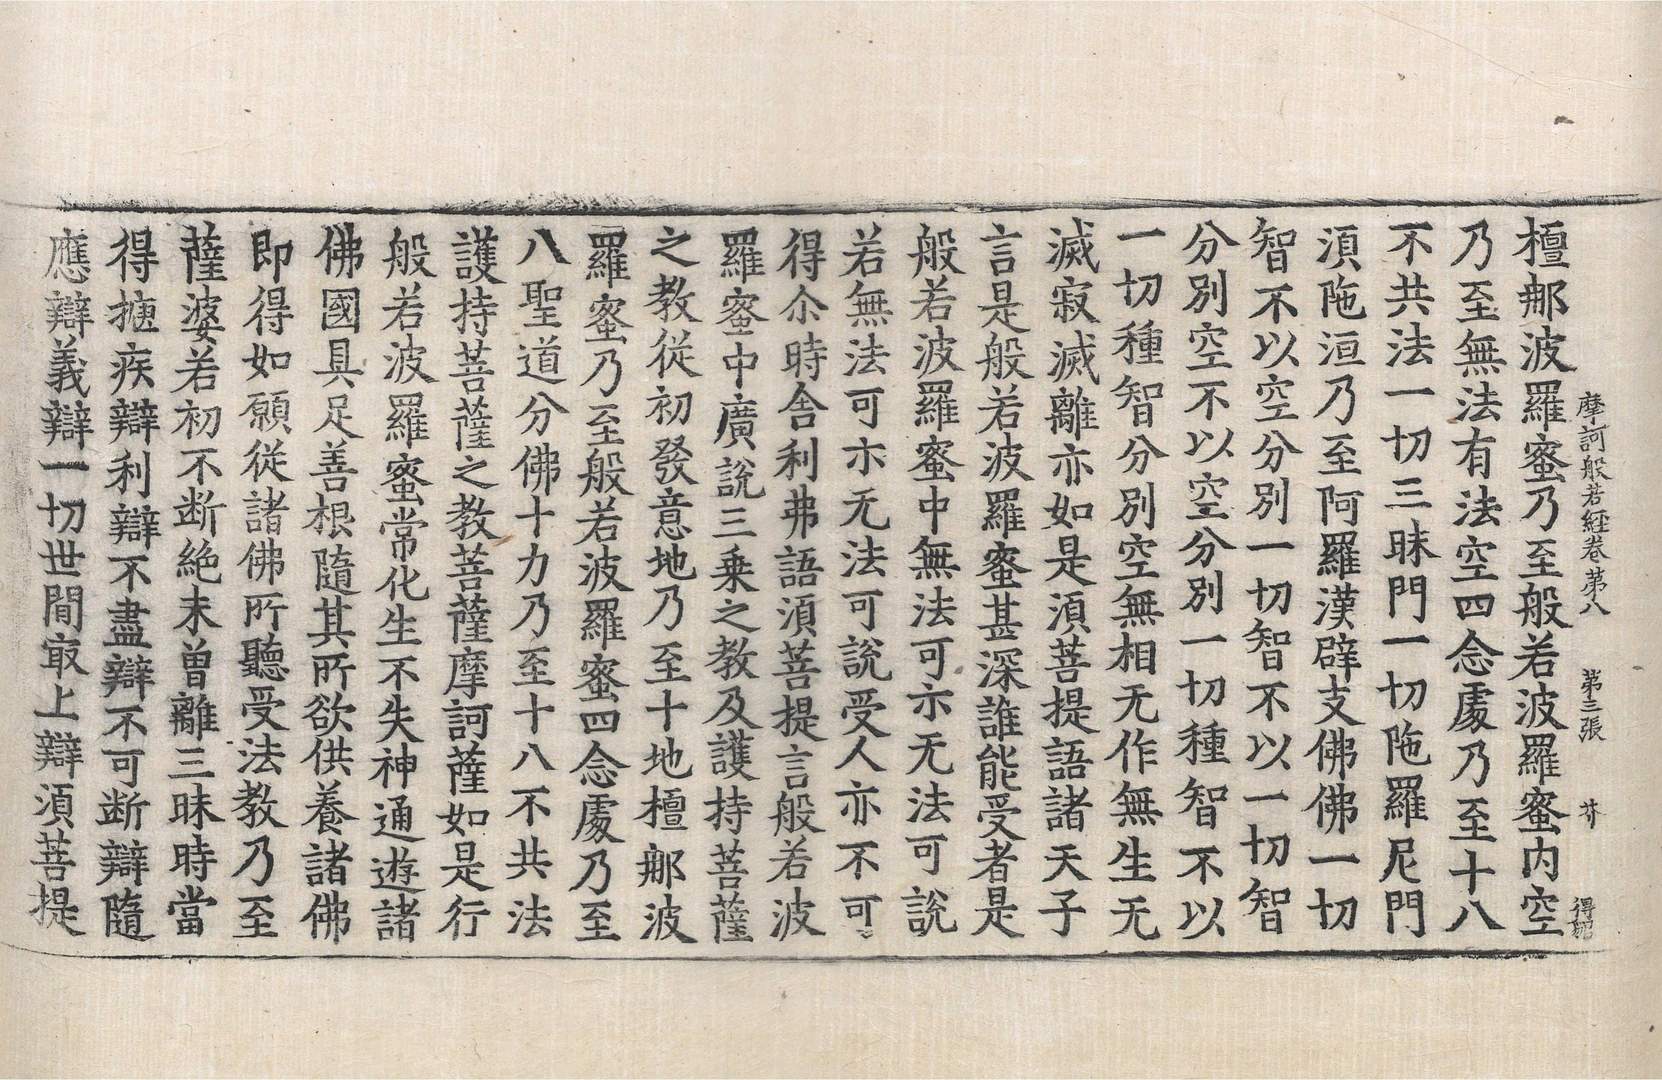 摩訶般若經卷第八　第三張　芥　得
檀那波羅蜜乃至般若波羅蜜内空
乃至無法有法空四念處乃至十八
不共法一切三昧門一切陁羅尼門
湏陁洹乃至阿羅漢辟支佛佛一切
智不以空分別一切智不以一切智
分別空不以空分別一切種智不以
一切種智分別空無相无作無生无
滅寂滅離亦如是湏菩提語諸天子
言是般若波羅蜜甚深誰能受者是
般若波羅蜜中無法可示无法可說
若無法可示无法可說受人亦不可
得尒時舍利弗語湏菩提言般若波
羅蜜中廣說三乗之教及護持菩薩
之教從初發意地乃至十地檀那波
羅蜜乃至般若波羅蜜四念處乃至
八聖道分佛十力乃至十八不共法
護持菩薩之教菩薩摩訶薩如是行
般若波羅蜜常化生不失神通遊諸
佛國具足善根隨其所欲供養諸佛
即得如願從諸佛所聽受法教乃至
薩婆若初不断絶未曾離三昧時當
得㨗疾辯利辯不盡辯不可断辯隨
應辯義辯一切世間㝡上辯湏菩提